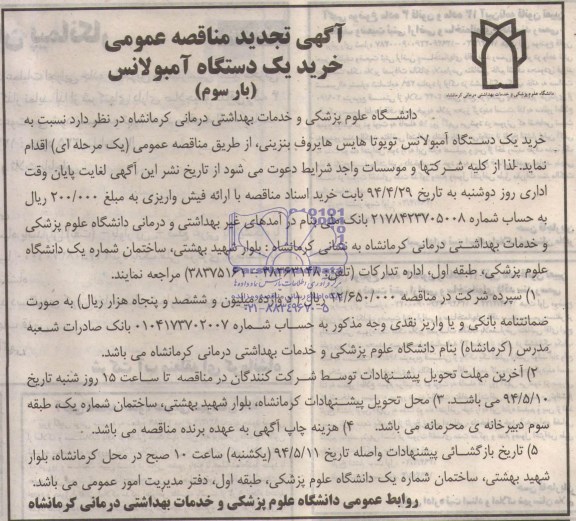 آگهی تجدید مناقصه عمومی
خرید یک دستگاه آمبولانس
(بار سوم)
دانشگاه علوم پزشکی و خدمات بهداشتی درمانی کرمانشاه
دانشگاه علوم پزشکی و خدمات بهداشتی درمانی کرمانشاه در نظر دارد نسبت به
خرید یک دستگاه آمبولانس تویوتا هایس هایروف بنزینی، از طریق مناقصه عمومی (یک مرحله ای) اقدام
نماید. لذا از کلیه شرکتها و موسسات واجد شرایط دعوت می شود از تاریخ نشر این آگهی لغایت پایان وقت
اداری روز دوشنبه به تاریخ ۹۴/۴/۲۹ بابت خرید اسناد مناقصه با ارائه فیش واریزی به مبلغ ۲۰۰/۰۰۰ ریال
به حساب شماره ۲۱۷۸۴۲۳۷۰۵۰۰۸ بانک ملی بنام درآمدهای غیر بهداشتی و درمانی دانشگاه علوم پزشکی
و خدمات بهداشتی درمانی کرمانشاه به نشانی کرمانشاه: بلوار شهید بهشتی، ساختمان شماره یک دانشگاه
علوم پزشکی، طبقه اول، اداره تدارکات (تلفن: مراجعه نمایند.
۱) سپرده شرکت در مناقصه ۲۲/۶۵۰/۰۰۰ ریال (بیست و دو میلیون و ششصد و پنجاه هزار ریال) به صورت
ضمانتنامه بانکی و یا واریز نقدی وجه مذکور به حساب شماره ۰۱۰۴۱۷۳۷۰۲۰۰۷ بانک صادرات شعبه
مدرس (کرمانشاه) بنام دانشگاه علوم پزشکی و خدمات بهداشتی درمانی کرمانشاه می باشد.
۲) آخرین مهلت تحویل پیشنهادات توسط شرکت کنندگان در مناقصه تا ساعت ۱۵ روز شنبه تاریخ
۹۴/۵/۱۰ می باشد. ۳) محل تحویل پیشنهادات کرمانشاه، بلوار شهید بهشتی، ساختمان شماره یک، طبقه
سوم دبیرخانه ی محرمانه می باشد. ۴) هزینه چاپ آگهی به عهده برنده مناقصه می باشد.
۵) تاریخ بازگشائی پیشنهادات واصله تاریخ ۹۴/۵/۱۱ (یکشنبه) ساعت ۱۰ صبح در محل کرمانشاه، بلوار
شهید بهشتی، ساختمان شماره یک دانشگاه علوم پزشکی، طبقه اول، دفتر مدیریت امور عمومی می باشد.
روابط عمومی دانشگاه علوم پزشکی و خدمات بهداشتی درمانی کرمانشاه